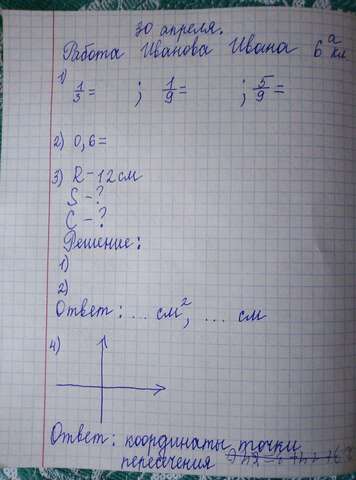 30 апреля.
Работа Иванова Ивана 6 а кл
1) 1/3 = ; 1/9 = ; 5/9 =
2) 0,6=
3) R – 12 см
S – ?
C – ?
Решение:
1)
2)
Ответ: ... см², ... см
4)
Ответ: координаты точки
пересечения